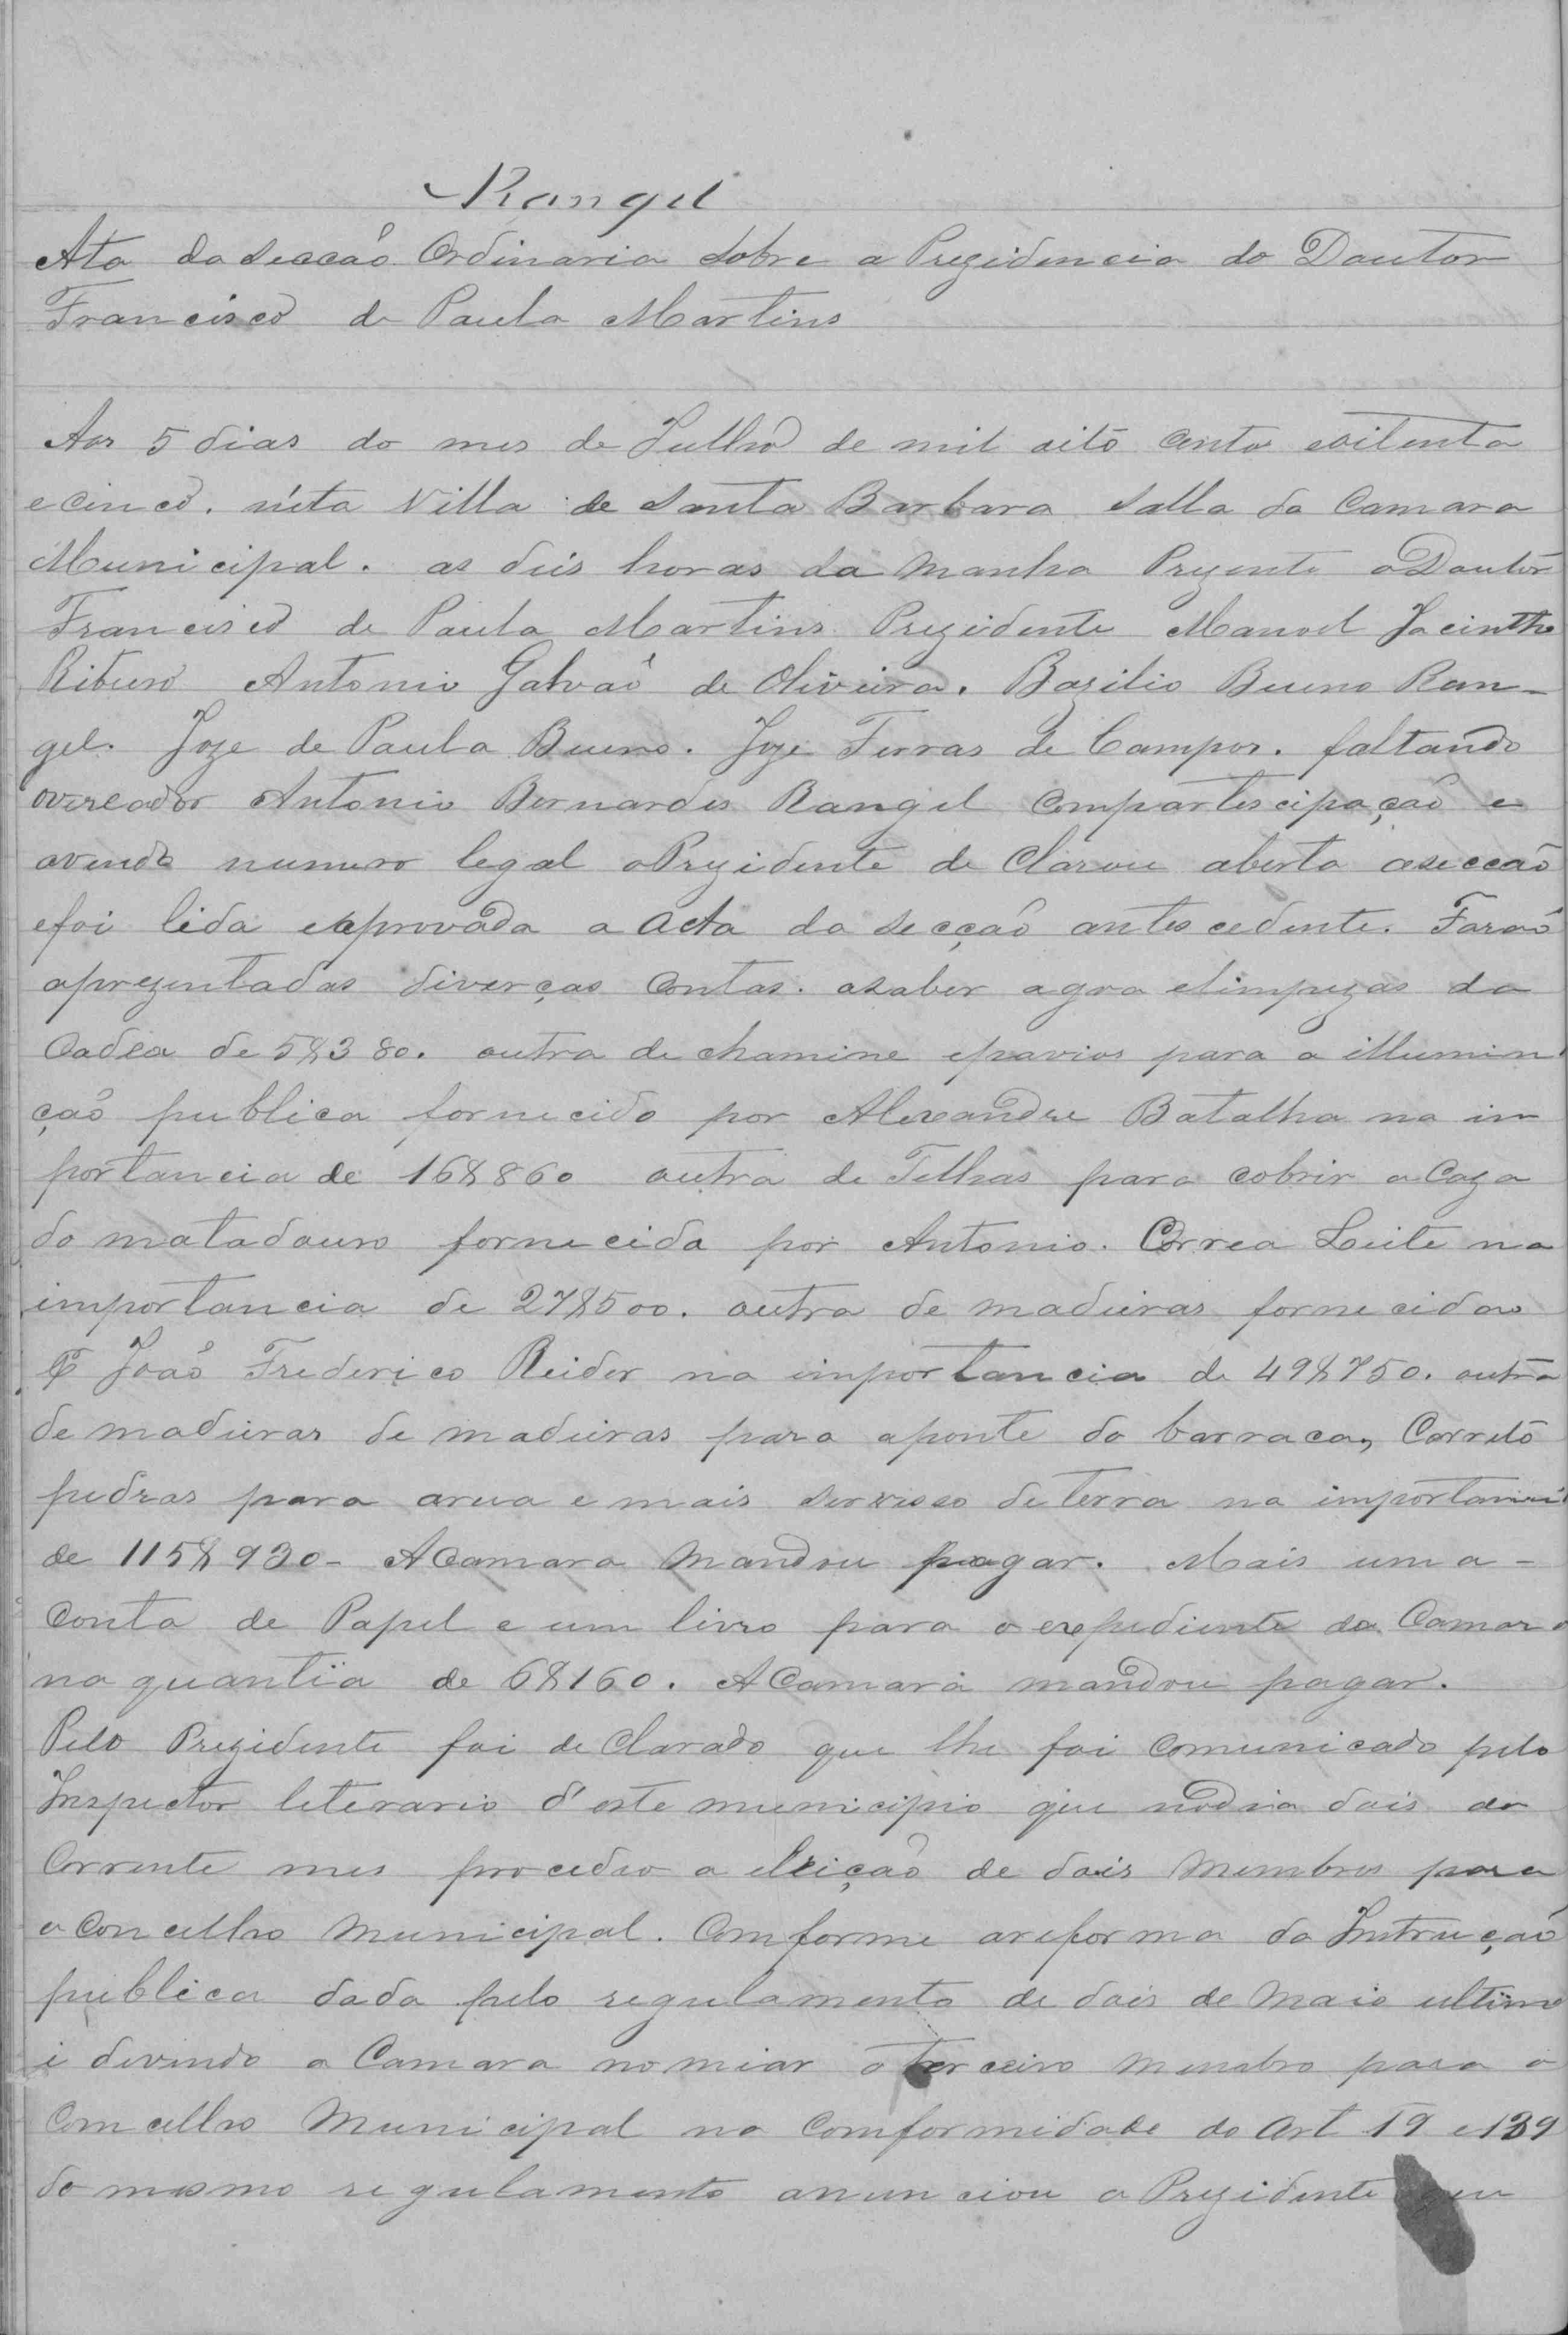 Rangel
Ata da secção Ordinaria sobre a Prezidencia do Doutor
Francisco de Paula Martins
Aos 5 dias do mes de Julho de mil oito centos eoitenta
e cinco. n'esta Villa de Santa Barbara salla da Camara
Municipal. as deis horas da manha Prezente o Doutor
Francisco de Paula Martins Prezidente Manoel Jacintho
Ribeiro Antonio Galvaõ de Oliveira. Bazilio Bueno Ran-
gel. Joze de Paula Bueno. Joze Ferras de Campos. faltando
overeador Antonio Bernardes Rangel Compartescipaçaõ e
avendo numero legal o Prezidente de Clarou aberta asecçaõ
efoi lida eaprovada a Acta da secçaõ antescedente. Foraõ
aprezentadas diverças Contas. asaber agoa elimpezas da
Cadea de 5$380. outra de chamine epavios para a illumin
çaõ publica fornecido por Alexandre Batalha na im
portancia de 16$860 outra de Telhas para cobrir a Caza
do matadouro fornecida por Antonio Correa Leite na
importancia de 27$500. outra de madeiras fornecidas
P João Frederico Reider na importancia de 49$750. outra
de madeiras de madeiras para aponte do barraca, Carreto
pedras para area e mais servisso de terra na importancia
de 115$930- A Camara Mandou pagar. Mais uma-
Conta de Papel e um livro para o expediente da Camara
na quantia de 6$160. A Camara mandou pagar.
Pelo Prezidente foi de Clarado que lhe foi Comunicado pelo
Inspector literario d'este municipio que nodia dois do
Corrente mes procedeo a eleição de dois Membros para
o Concelho Municipal. Comforme areforma da Instruçaõ
publica dada pelo regulamento de dois de Maio ultimo
i devendo a Camara nomiar o terceiro Membro para o
Comcelho Municipal na Comformidade do Art 19 e 139
do mesmo regulamento anunciou o Prezidente que